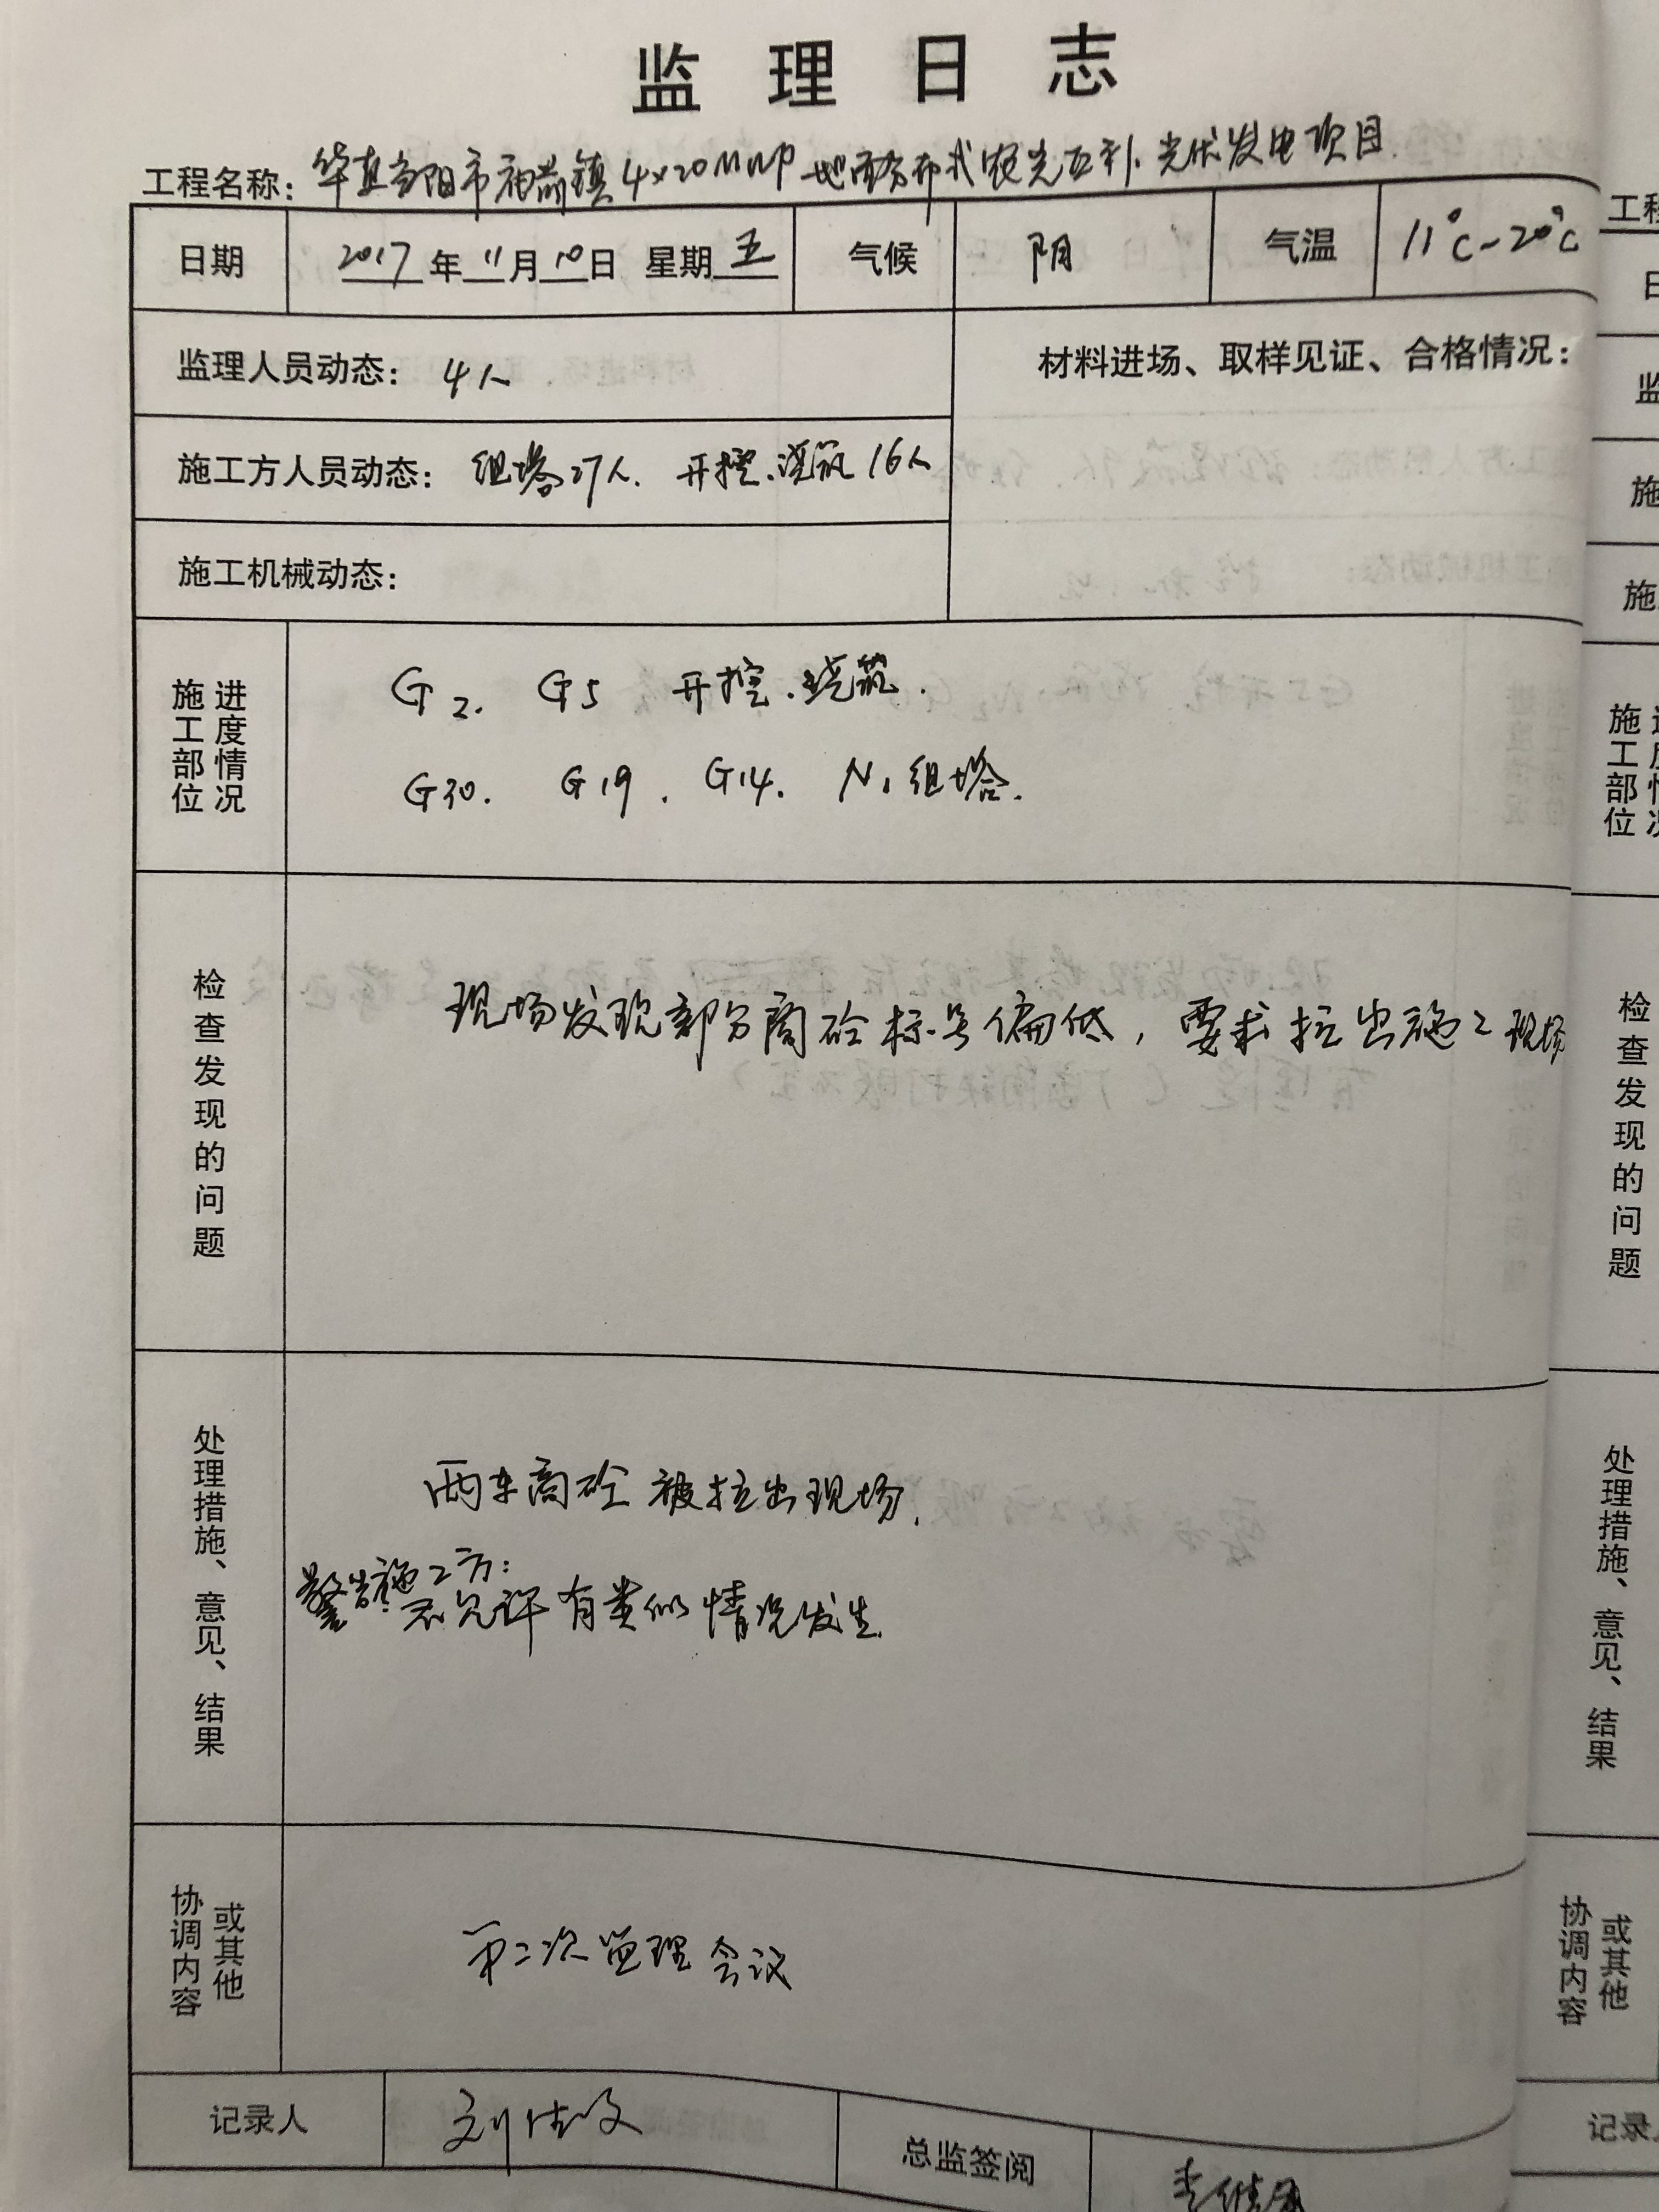 监理日志
工程名称: 华直当阳市 镇4×20MWP地面分布式农光互补光伏发电项目
日期 2017年11月10日 星期五 气候 阴 气温 11℃~20℃
监理人员动态: 4人
材料进场、取样见证、合格情况:
施工方人员动态: 组塔27人. 开挖.浇筑16人
施工机械动态:
施工部位
进度情况
G2. G5 开挖.浇筑.
G30. G19. G14. N1组塔.
检查发现的问题
现场发现部分商砼标号偏低, 要求拉出施工现场
处理措施、意见、结果
两车商砼被拉出现场.
警告施工方:
不允许有类似情况发生.
协调内容
或其他
第二次监理会议
记录人 刘
总监签阅 李
工程
日
监
施
施
施工部位
检查发现的问题
处理措施、意见、结果
协调内容
或其他
记录人